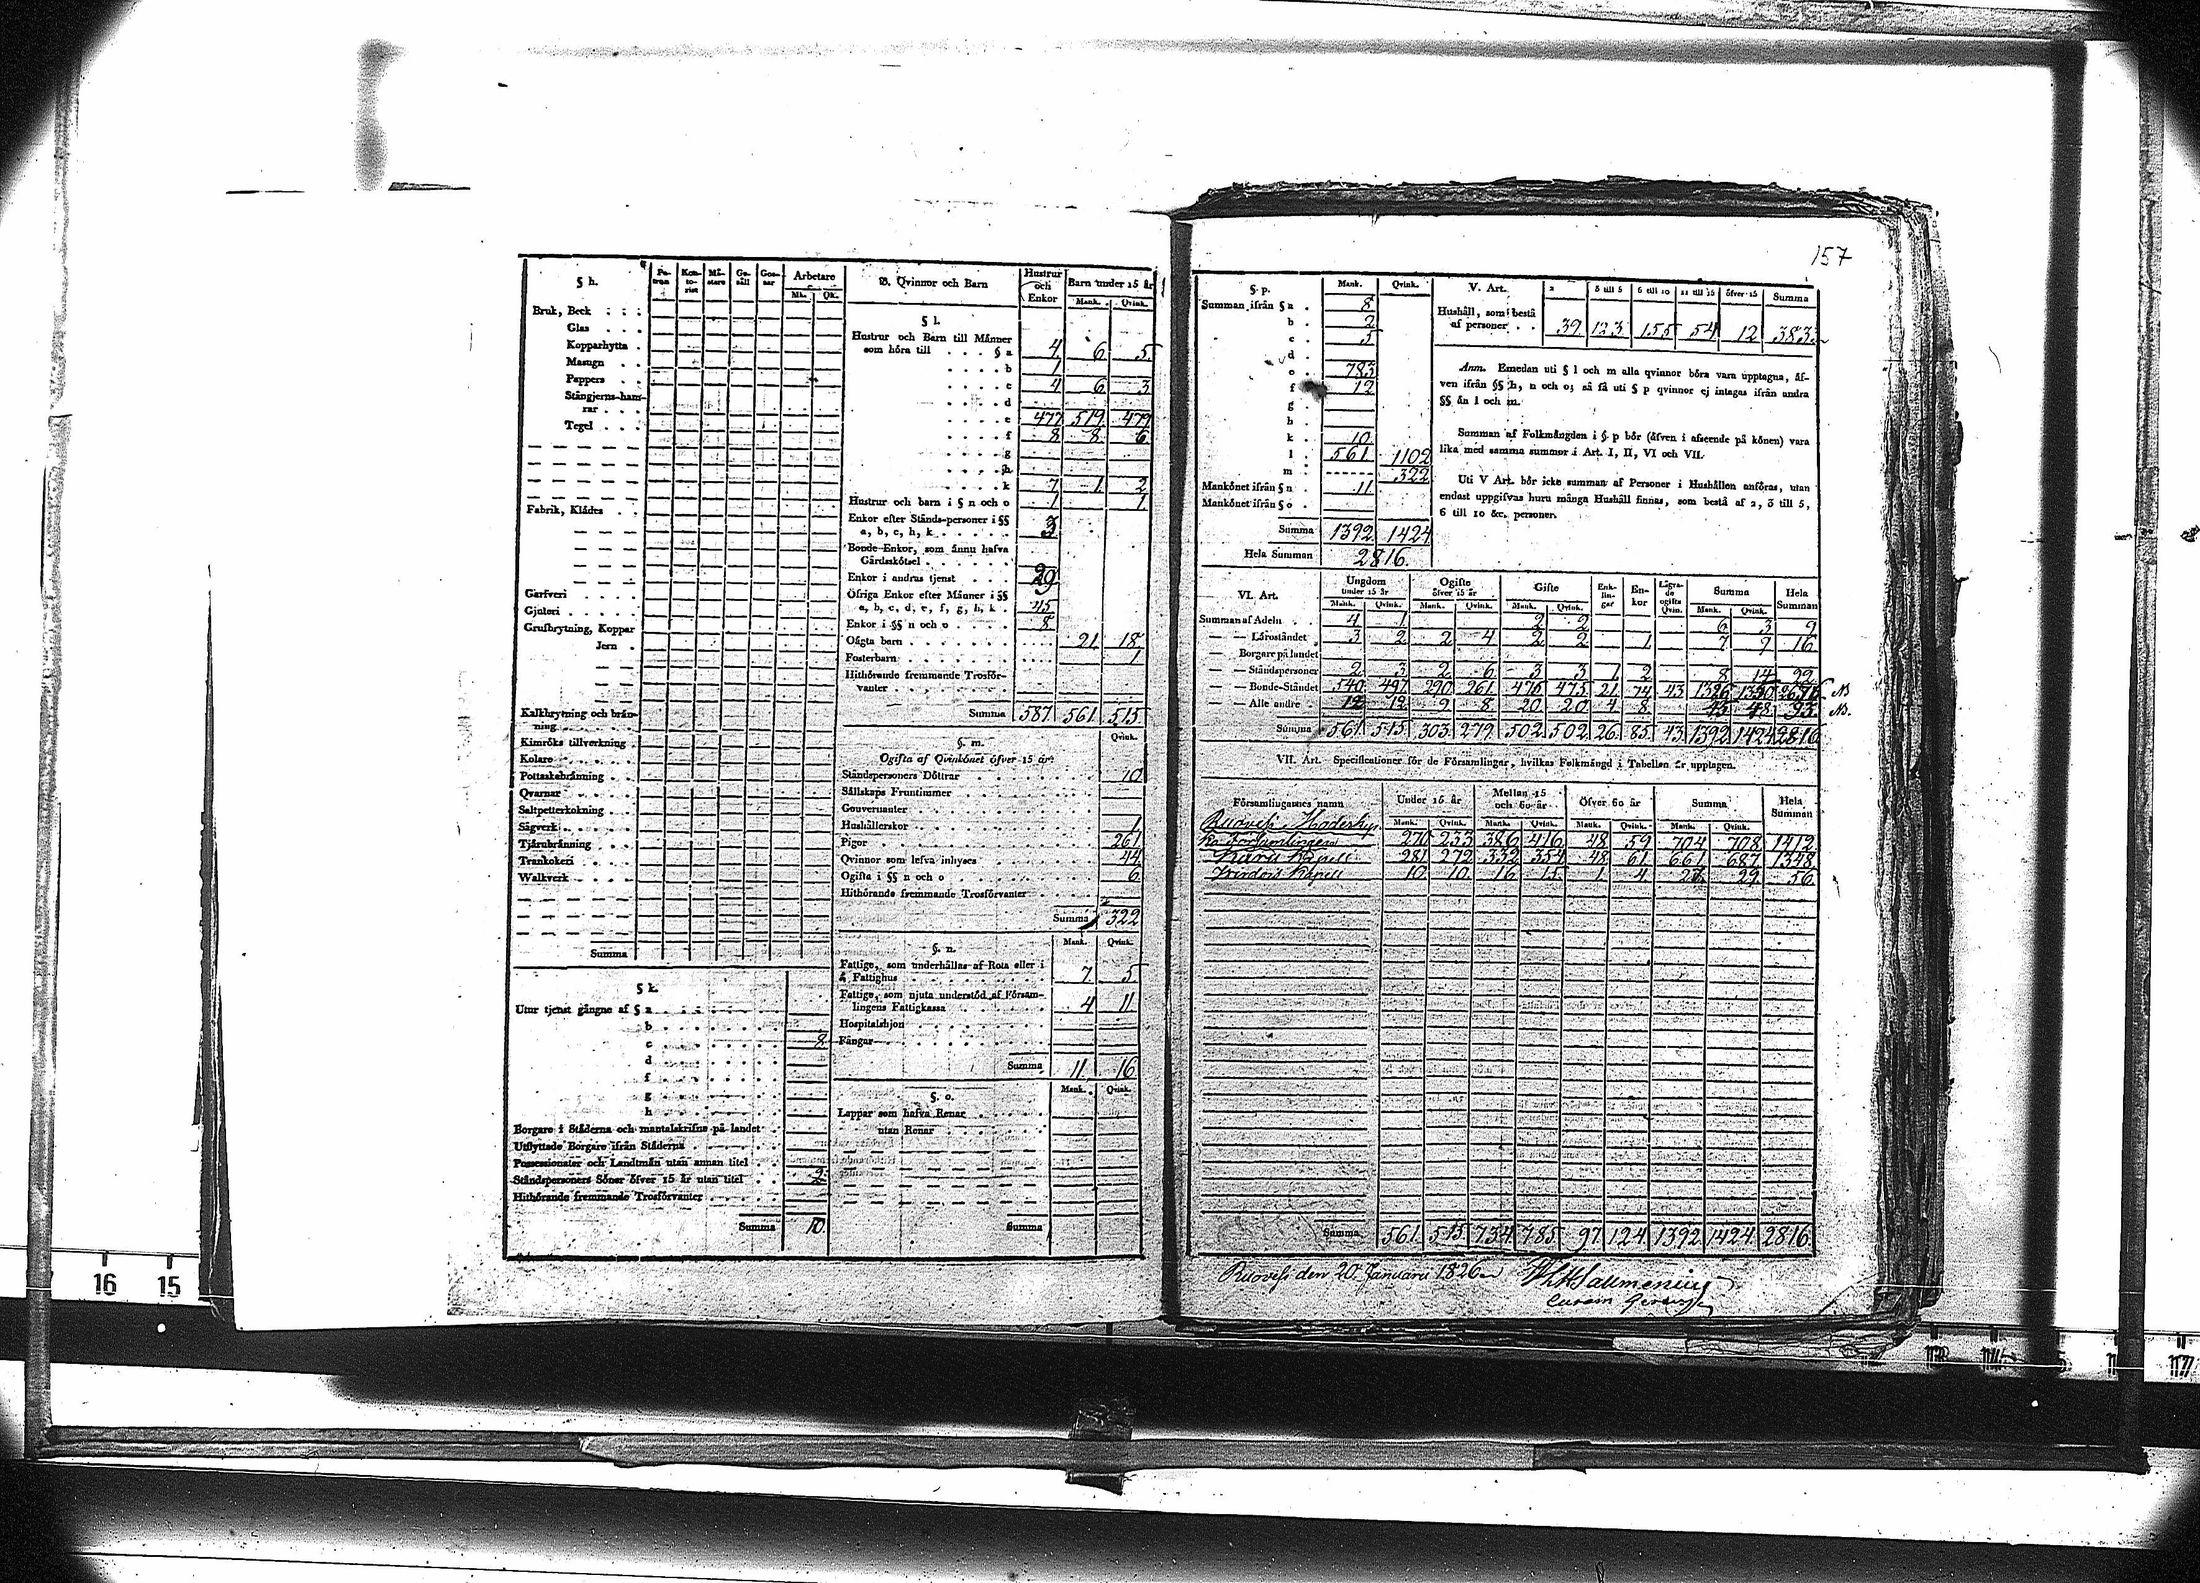 157
§ h.
Patron
Kontorist
Mästare
Gesäll
Gossar
Arbetare
Mk. Qk.
Bruk, Beck
Glas
Kopparhytta
Masugn
Pappers
Stångjerns-hamrar
Tegel
Fabrik, Klädes
Garfveri
Gjuteri
Grufbrytning, Koppar
Jern
Kalkbrytning och bränning
Kimröks tillverkning
Kolare
Pottaskebränning
Qvarnar
Saltpetterkokning
Sågverk
Tjärubränning
Trankokeri
Walkverk
Summa
§ k.
Utur tjenst gångne af § a
b
c 8
d
f
g
h
Borgare i Städerna och mantalskrifne på landet
Utflyttade Borgare ifrån Städerna
Possessionater och Landtmän utan annan titel
Ståndspersoners Söner öfver 15 år utan titel 2
Hithörande fremmande Trosförvanter
Summa 10
B. Qvinnor och Barn
Hustrur och Enkor
Barn under 15 år
Mank. Qvink.
§ l.
Hustrur och Barn till Männer
som höra till § a 4 6 5
b 1
c 4 6 3
d
e 477 519 479
f 8 8 6
g
h
k 7 1 2
Hustrur och barn i § n och o 1 1
Enkor efter Stånds-personer i §§
a, b, c, h, k 3
Bonde-Enkor, som ännu hafva
Gårdsskötsel 29
Enkor i andras tjenst
Öfriga Enkor efter Männer i §§
a, b, c, d, e, f, g, h, k 45
Enkor i §§ n och o 8
Oägta barn 21 18
Fosterbarn 1
Hithörande fremmande Trosförvanter
Summa 587 561 515
§. m.
Qvink.
Ogifta af Qvinkönet öfver 15 år:
Ståndspersoners Döttrar 10
Sällskaps Fruntimmer
Gouvernanter
Hushållerskor 1
Pigor 261
Qvinnor som lefva inhyses 44
Ogifta i §§ n och o 6
Hithörande fremmande Trosförvanter
Summa 322
§. n.
Mank. Qvink.
Fattige, som underhållas af Rota eller i
å Fattighus 7 5
Fattige, som njuta understöd af Församlingens Fattigkassa 4 11
Hospitalshjon
Fångar
Summa 11 16
§. o.
Mank. Qvink.
Lappar som hafva Renar
utan Renar
Summa
§. p.
Mank. Qvink.
Summan ifrån § a 8
b 2
c 5
d
e 783
f 12
g
h
k 10
l 561 1102
m 322
Mankönet ifrån § n 11
Mankönet ifrån § o
Summa 1392 1424
Hela Summan 2816
V. Art.
2
3 till 5
6 till 10
11 till 15
öfver 15
Summa
Hushåll, som bestå
af personer 39 123 155 54 12 383
Anm. Emedan uti § l och m alla qvinnor böra vara upptagna, äfven ifrån §§ h, n och o; så få uti § p qvinnor ej intagas ifrån andra
§§ än l och m.
Summan af Folkmängden i §. p bör (äfven i afseende på könen) vara
lika med samma summor i Art. I, II, VI och VII.
Uti V Art. bör icke summan af Personer i Hushållen anföras, utan
endast uppgifvas huru många Hushåll finnas, som bestå af 2, 3 till 5,
6 till 10 &c. personer.
VI. Art.
Ungdom under 15 år
Ogifte öfver 15 år
Gifte
Enklingar
Enkor
Lägrade ogifte Qvin.
Summa
Hela Summan
Mank. Qvink. Mank. Qvink. Mank. Qvink. Mank. Qvink.
Summan af Adeln 4 1 2 2 6 3 9
— — Läroståndet 3 2 2 4 2 2 1 7 9 16
— — Borgare på landet
— — Ståndspersoner 2 3 2 6 3 3 1 2 8 14 22
— — Bonde-Ståndet 540 497 290 261 475 475 21 74 43 1326 1350 2676 NB
— — Alle andre 12 12 9 8 20 20 4 8 45 48 93 NB.
Summa 561 515 303 279 502 502 26 85 43 1392 1424 2816
VII. Art. Specificationer för de Församlingar, hvilkas Folkmängd i Tabellen är upptagen.
Församlingarnes namn
Under 15 år
Mellan 15 och 60 år
Öfver 60 år
Summa
Hela Summan
Mank. Qvink. Mank. Qvink. Mank. Qvink. Mank. Qvink.
Ruovesi Moderkyrko
Församlingen 270 233 386 416 48 59 704 708 1412
Kuru Kapell 281 272 332 354 48 61 661 687 1348
Kapell 10 10 16 15 1 4 27 29 56
Summa 561 515 734 785 97 124 1392 1424 2816
Ruovesi den 20 Januarii 1826